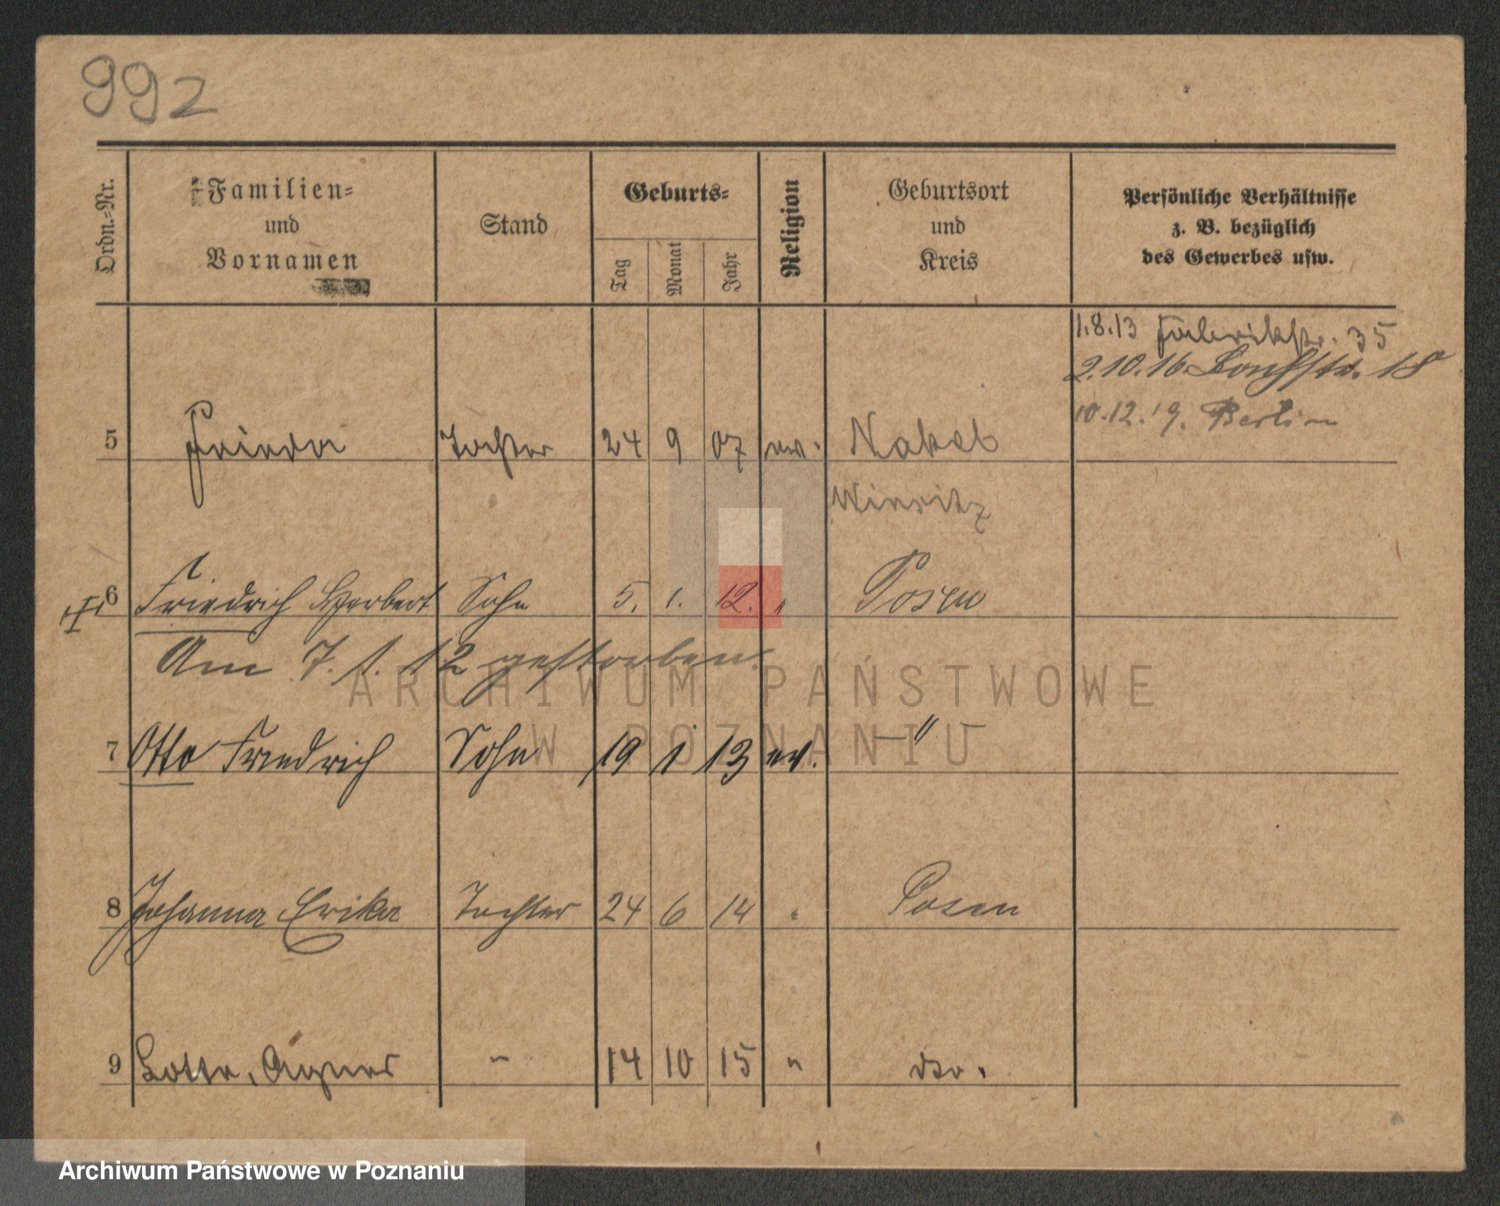 992
Ordn.-Nr.
Familien-
und
Vornamen
Stand
Geburts-
Tag
Monat
Jahr
Religion
Geburtsort
und
Kreis
Persönliche Verhältnisse
z. B. bezüglich
des Gewerbes usw.
1.8.13 Fabrikstr. 35
2.10.16 Bachstr. 18
10.12.19. Berlin
5 Frieda Tochter 24 9 07 ev. Nakel
6 Friedrich Herbert Sohn 5. 1. 12. " Posen
Am 7. 1. 12 gestorben.
7 Otto Friedrich Sohn 19 1 13 ev. -"-
8 Johanna Erika Tochter 24 6 14 " Posen
9 Lotte, Agnes " 14 10 15 " dto.
ARCHIWUM PAŃSTWOWE
W POZNANIU
Archiwum Państwowe w Poznaniu